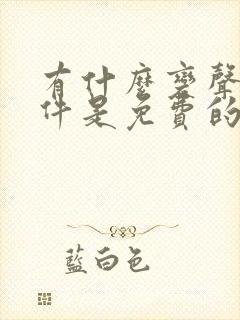 有什麼變聲
件是免費的
藍白色